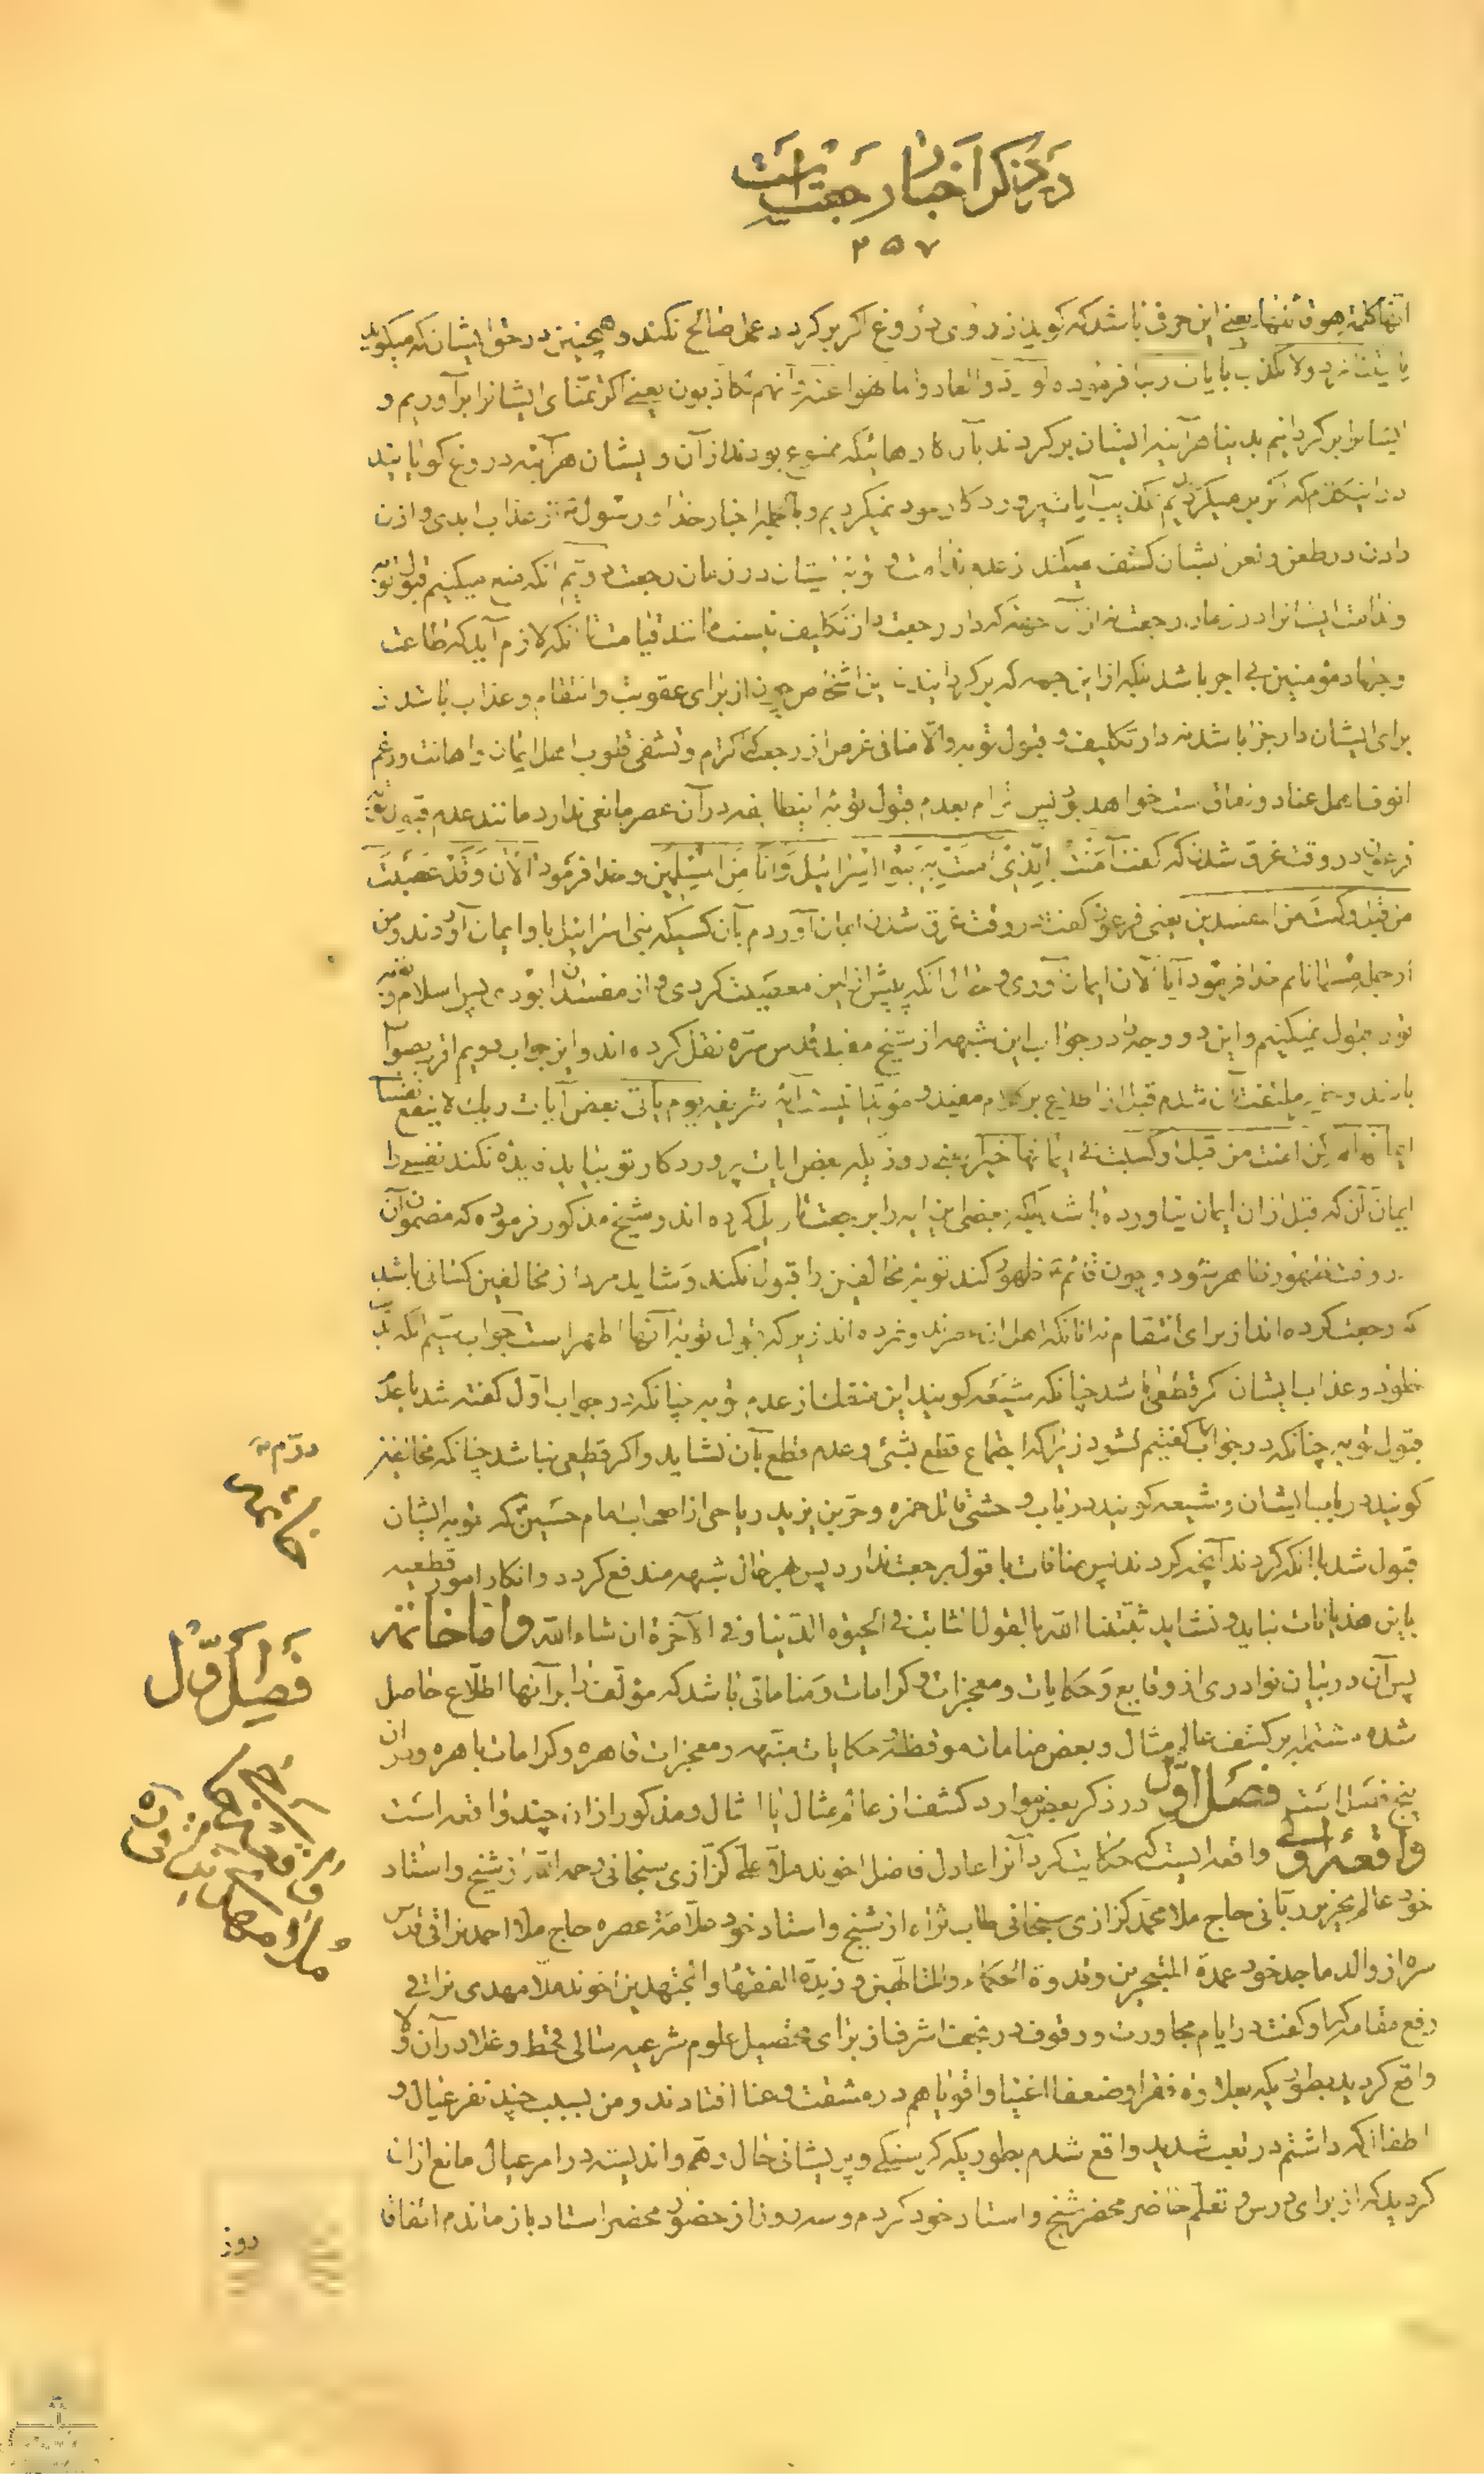 در ذکر اخبار رجعتست
۲۵۷
انها کلمة هو قائلها یعنی این حرفی باشد که گوید از روی دروغ اگر برگردد عمل صالح نکند و همچنین در حق ایشان که میگویند
یا لیتنا نرد ولا نکذب بایات ربنا فرموده و لو ردوا لعادوا لما نهوا عنه وانهم لکاذبون یعنی اگر تمنای ایشانرا برآوریم و
ایشانرا برگردانیم بدنیا هرآینه ایشان برگردند بآن کارهائیکه ممنوع بودند از آن و ایشان هرآینه دروغ گویانند
در اینکه که اگر برمیگردیم تکذیب آیات پروردگار خود نمیکردیم و بالجمله اخبار خدا و رسول از عذاب ابدی و اذن
دادن در طعن و لعن ایشان کشف میکند از عدم ندامت و توبه ایشان در زمان رجعت دویم آنکه منع میکنیم قبول توبه
و ندامت ایشانرا در زمان رجعت نه از آن جهة که دار رجعت دار تکلیف نیست مانند قیامت تا آنکه لازم آید که طاعت
و جهاد مؤمنین بی اجر باشد بلکه از این جهه که برگردانیدن این اشخاص چون از برای عقوبت و انتقام و عذاب باشد
برای ایشان دار جزا باشد نه دار تکلیف و قبول توبه والا منافی غرض از رجعت که اکرام و تشفی قلوب اهل ایمان و اهانت و رغم
انوف اهل عناد و نفاق است خواهد بود پس التزام بعدم قبول توبه این طایفه در آن عصر مانعی ندارد مانند عدم قبول توبه
فرعون در وقت غرق شدن که گفت آمنت بالذی امنت به بنوا اسرائیل وانا من المسلمین و خدا فرمود الآن وقد عصیت
من قبل وکنت من المفسدین یعنی فرعون گفت در وقت غرق شدن ایمان آوردم بآن کسیکه بنی اسرائیل باو ایمان آوردند و من
از جمله مسلمانانم خدا فرمود آیا الان ایمان آوردی و حال آنکه پیش از این معصیت کردی و از مفسدان بودی پس اسلام و توبه
تو را قبول نمیکنیم و این دو وجه را در جواب این شبهه از شیخ مفید قدس سره نقل کرده اند و این جواب دویم اقرب بصواب
باشد و خود ملتفت آن شدم قبل از اطلاع بر کلام مفید و مؤید آنست آیه شریفه یوم یاتی بعض آیات ربک لا ینفع نفسا
ایمانها لم تکن امنت من قبل او کسبت فی ایمانها خیرا یعنی روزیکه بعض ایات پروردگار تو بیاید فایده نکند نفسی را
ایمان آن که قبل از ان ایمان نیاورده باشد بعضی این ایه را برجعت تاویل کرده اند و شیخ مذکور فرموده که مضمون آن
در وقت ظهور ظاهر شود و چون قائم ظهور کند توبه مخالفین را قبول نکند و شاید مراد از مخالفین کسانی باشد
که رجعت کرده اند از برای انتقام نه آنانکه اهل ان عصرند و نمرده اند زیرا که قبول توبه آنها اظهر است جواب سیم آنکه
خلود و عذاب ایشان اگر قطعی باشد چنانکه شیعه گویند این منفک از عدم توبه چنانکه در جواب اول گفته شد یا عدم
قبول توبه چنانکه در جواب گفتیم نشود زیرا که اجتماع قطع بشیء و عدم قطع بآن نشاید و اگر قطعی نباشد چنانکه مخالفین
گویند در باب ایشان و شیعه گویند در باب وحشی قاتل حمزه و حر بن یزید ریاحی از اصحاب امام حسین که توبه ایشان
قبول شد با آنکه کردند آنچه کردند پس منافات با قول برجعت ندارد پس بهرحال شبهه مندفع گردد و انکار امور قطعیه
باین هذیانات نباید و نشاید ثبتنا الله بالقول الثابت فی الحیوه الدنیا و فی الاخرة ان شاء الله و اما خاتمه
پس آن در بیان نوادری از وقایع و حکایات و معجزات و کرامات و مناماتی باشد که مؤلف را بر آنها اطلاع حاصل
شده مشتمل بر کشف عالم مثال و بعض منامات موقظه و حکایات منبهه و معجزات قاهره و کرامات باهره و در ان
پنج فصل است فصل اول در ذکر بعض موارد کشف از عالم مثال یا امثال و مذکور از ان چند واقعه است
واقعه اولی واقعه ایست که حکایت کرد آنرا عادل فاضل اخوند ملا علی کزازی سنجانی رحمه الله از شیخ و استاد
خود عالم نحریر ربانی حاج ملا محمد کزازی سنجانی طاب ثراه از شیخ و استاد خود علامة عصره حاج ملا احمد نراقی قدس
سره از والد ماجد خود عمدة المتبحرین و قدوة الحکماء والمتالهین و زبدة الفقهاء و المجتهدین اخوند ملا مهدی نراقی
رفع مقامه که او گفت در ایام مجاورت و وقوف در نجف اشرف از برای تحصیل علوم شرعیه سالی قحط و غلا در آن ولا
واقع گردید بطوریکه بعلاوه فقرا و ضعفا اغنیا و اقویا هم در مشقت و عنا افتادند و من بسبب چند نفر عیال و
اطفالیکه داشتم در تعب شدید واقع شدم بطوریکه گرسنگی و پریشانی حال و هم و اندیشه در امر عیال مانع از ان
گردید که از برای درس و تعلم حاضر محضر شیخ و استاد خود گردم و سه روز از حضور محضر استاد باز ماندم اتفاقا
روز
خاتمه
فصل اول
واقعه
ملا مهدی